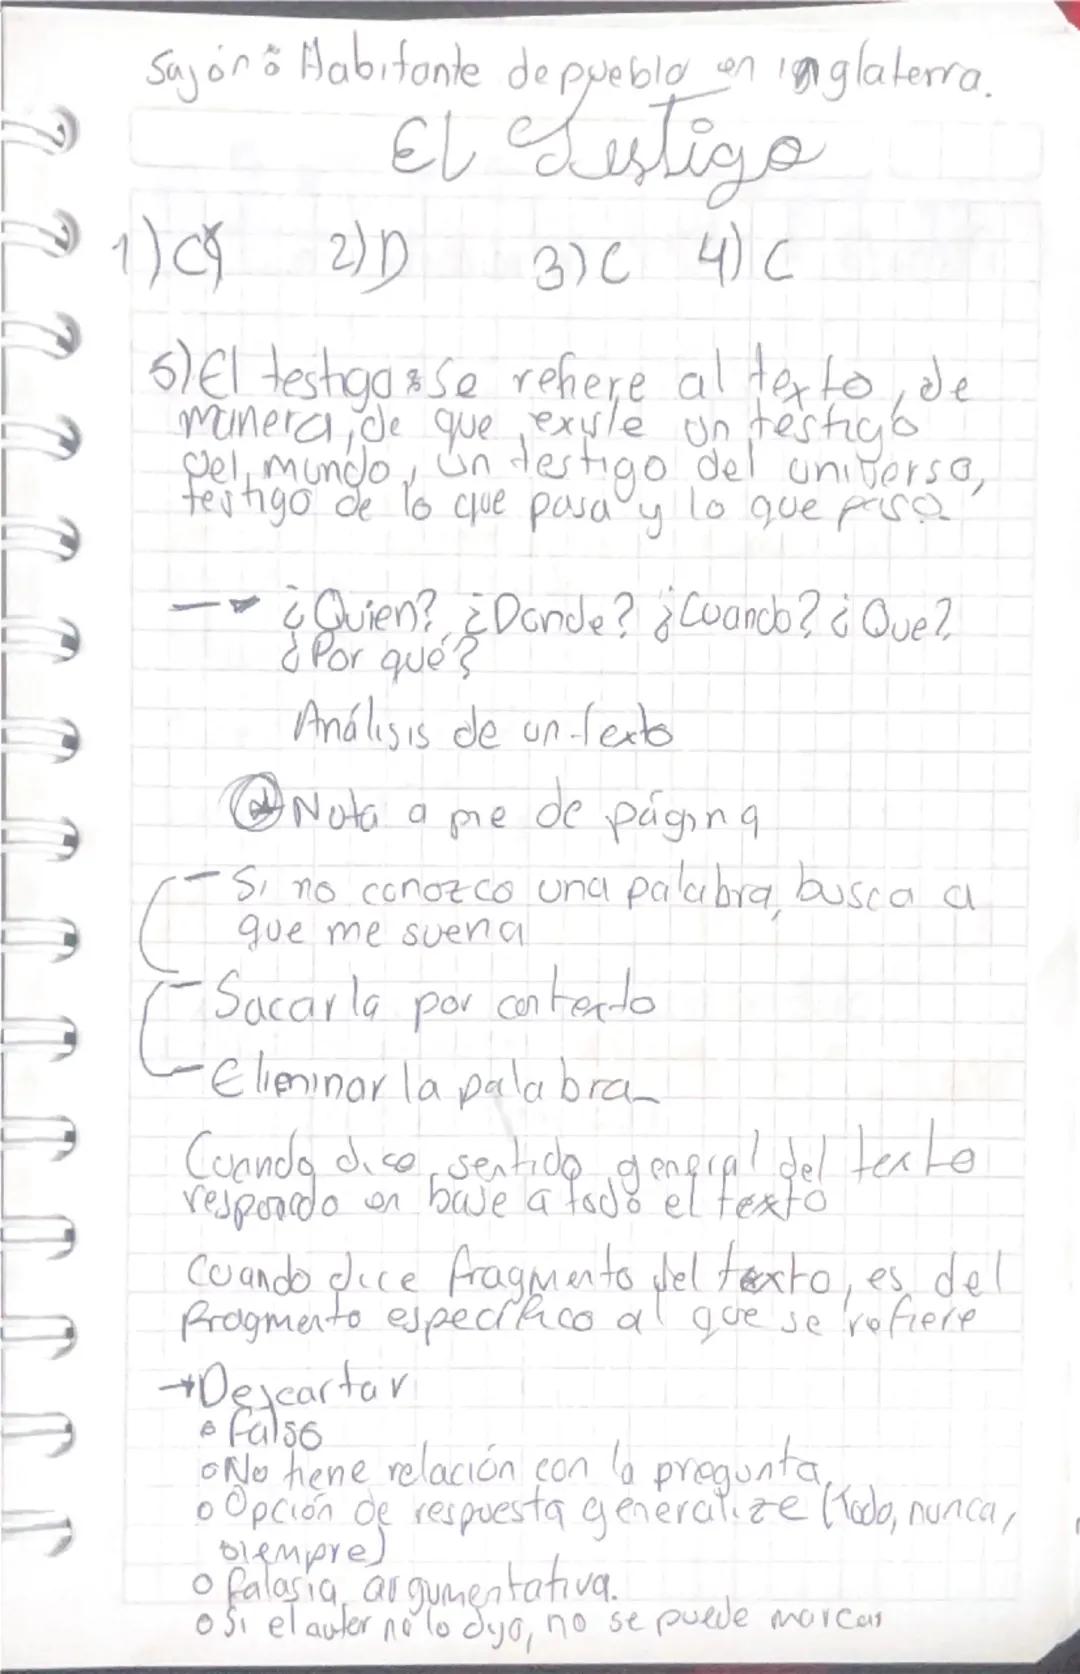 Sajón: Habitante de pueblo en inglaterra.
El Testigo
1) C 2) D 3) C 4) C
5) El testigo: Se refiere al texto, de
manera, de que existe un testigo
del mundo, un testigo del universo,
testigo de lo que pasa y lo que paso
¿Quien? ¿Donde? ¿Cuando? ¿Que?
¿Por qué?
Análisis de un texto
Nota a pie de página
- Si no conozco una palabra, busco a
que me suena
- Sacarla por contexto
- Eliminar la palabra
Cuando dice sentido general del texto
respondo en base a todo el texto
Cuando dice fragmento del texto, es del
fragmento específico al que se refiere
→ Descartar
• falso
• No tiene relación con la pregunta.
• Opción de respuesta generalize (Todo, nunca,
siempre)
• falasia argumentativa.
• Si el autor no lo dijo, no se puede marcar